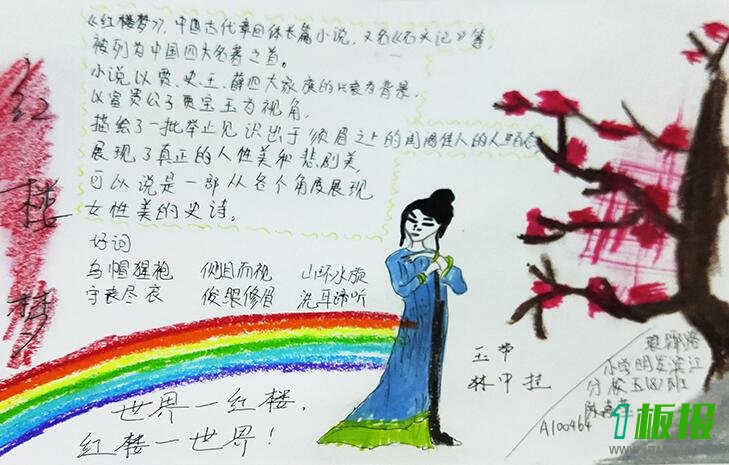 红
楼
梦
《红楼梦》,中国古代章回体长篇小说,又名《石头记》等,
被列为中国四大名著之首。
小说以贾、史、王、薛四大家族的代衰为背景,
以富贵公子贾宝玉为视角,
描绘了一批举止见识出于须眉之上的闺阁佳人的人生
展现了真正的人性美和悲剧美,
可以说是一部从各个角度展现
女性美的史诗。
好词
乌帽猩袍 侧目而视 山环水旋
守丧尽哀 俊眼修眉 洗耳谛听
玉带
林中挂
世界一红楼,
红楼一世界!
小学明发滨江
分校五
A100464
板报